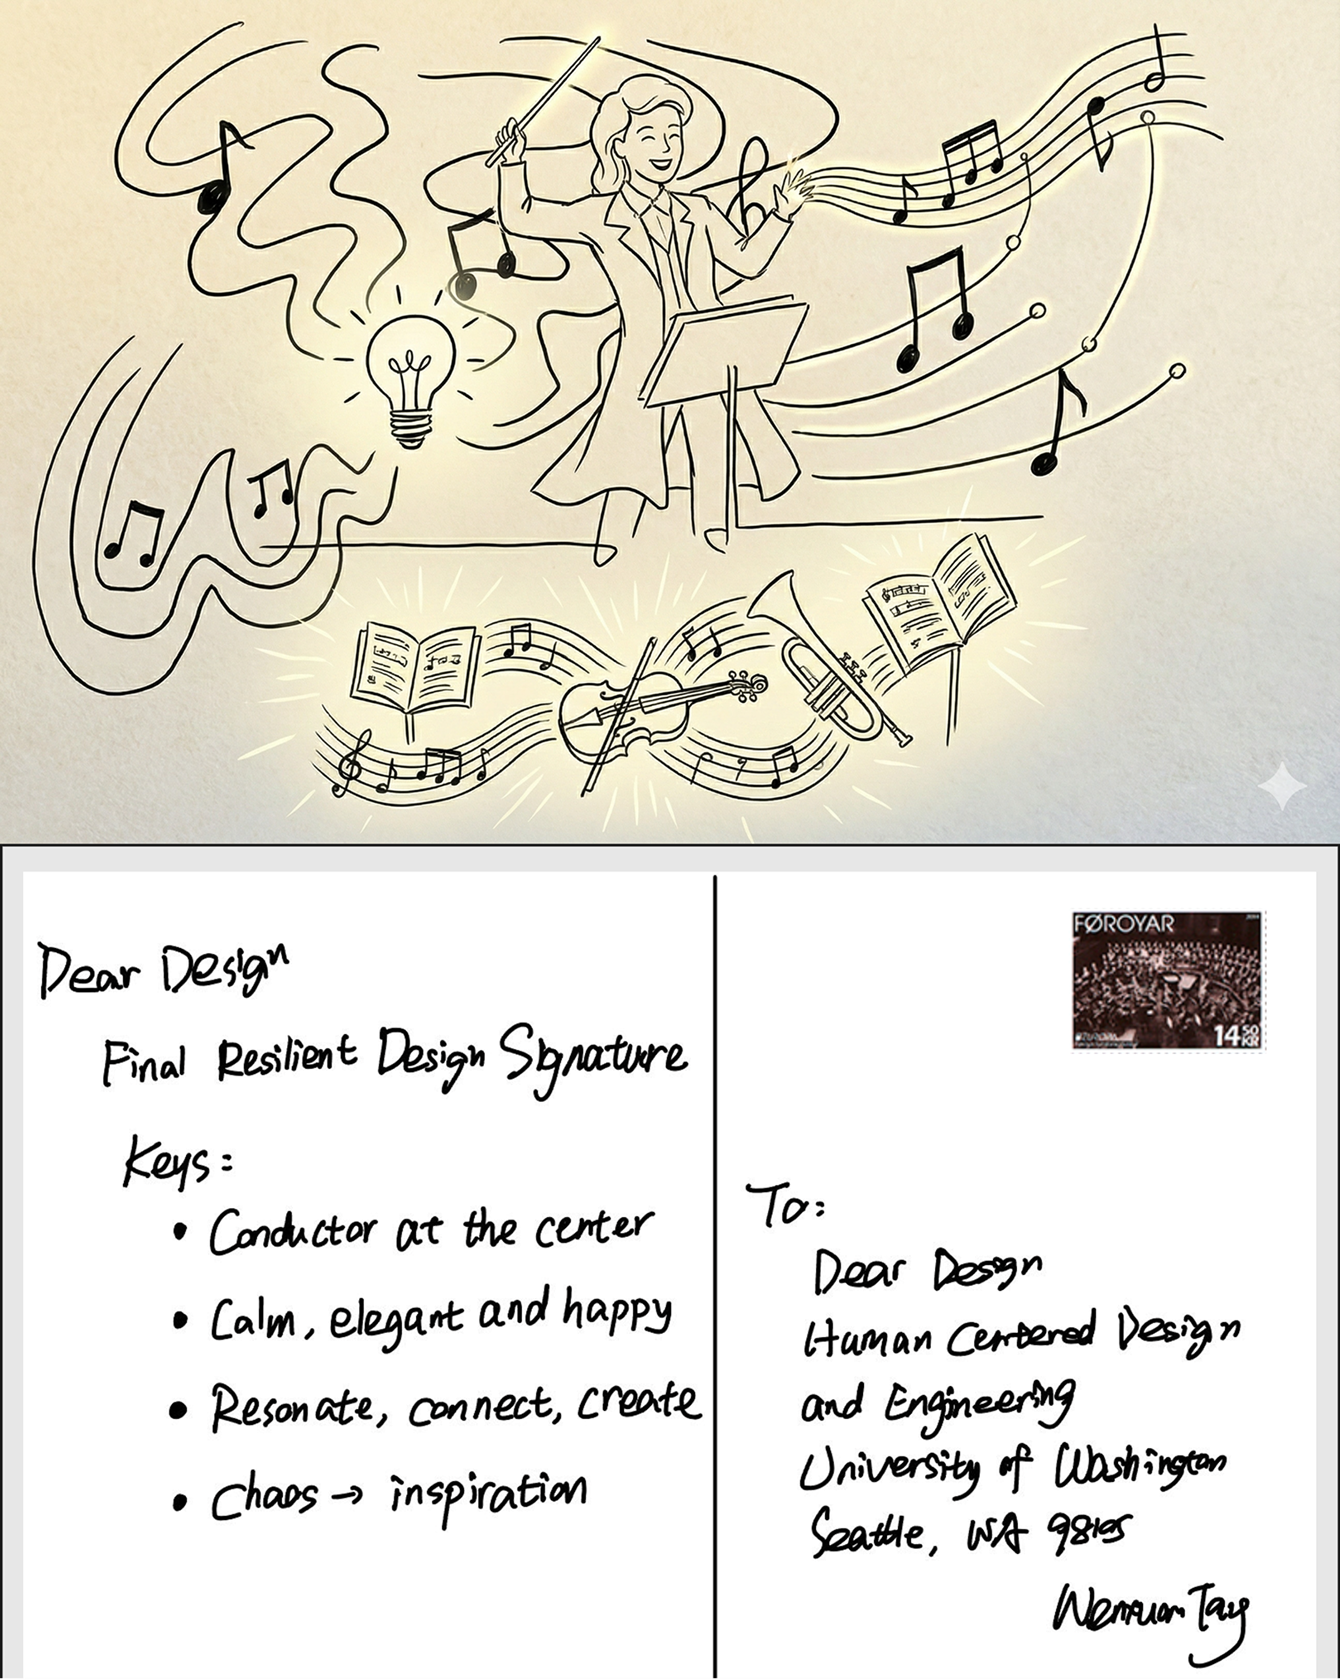 Dear Design
Final Resilient Design Signature
Keys:
• Conductor at the center
• Calm, elegant and happy
• Resonate, connect, create
• Chaos → inspiration
FØROYAR
14 50 KR
To:
Dear Design
Human Centered Design
and Engineering
University of Washington
Seattle, WA 98195
Tay